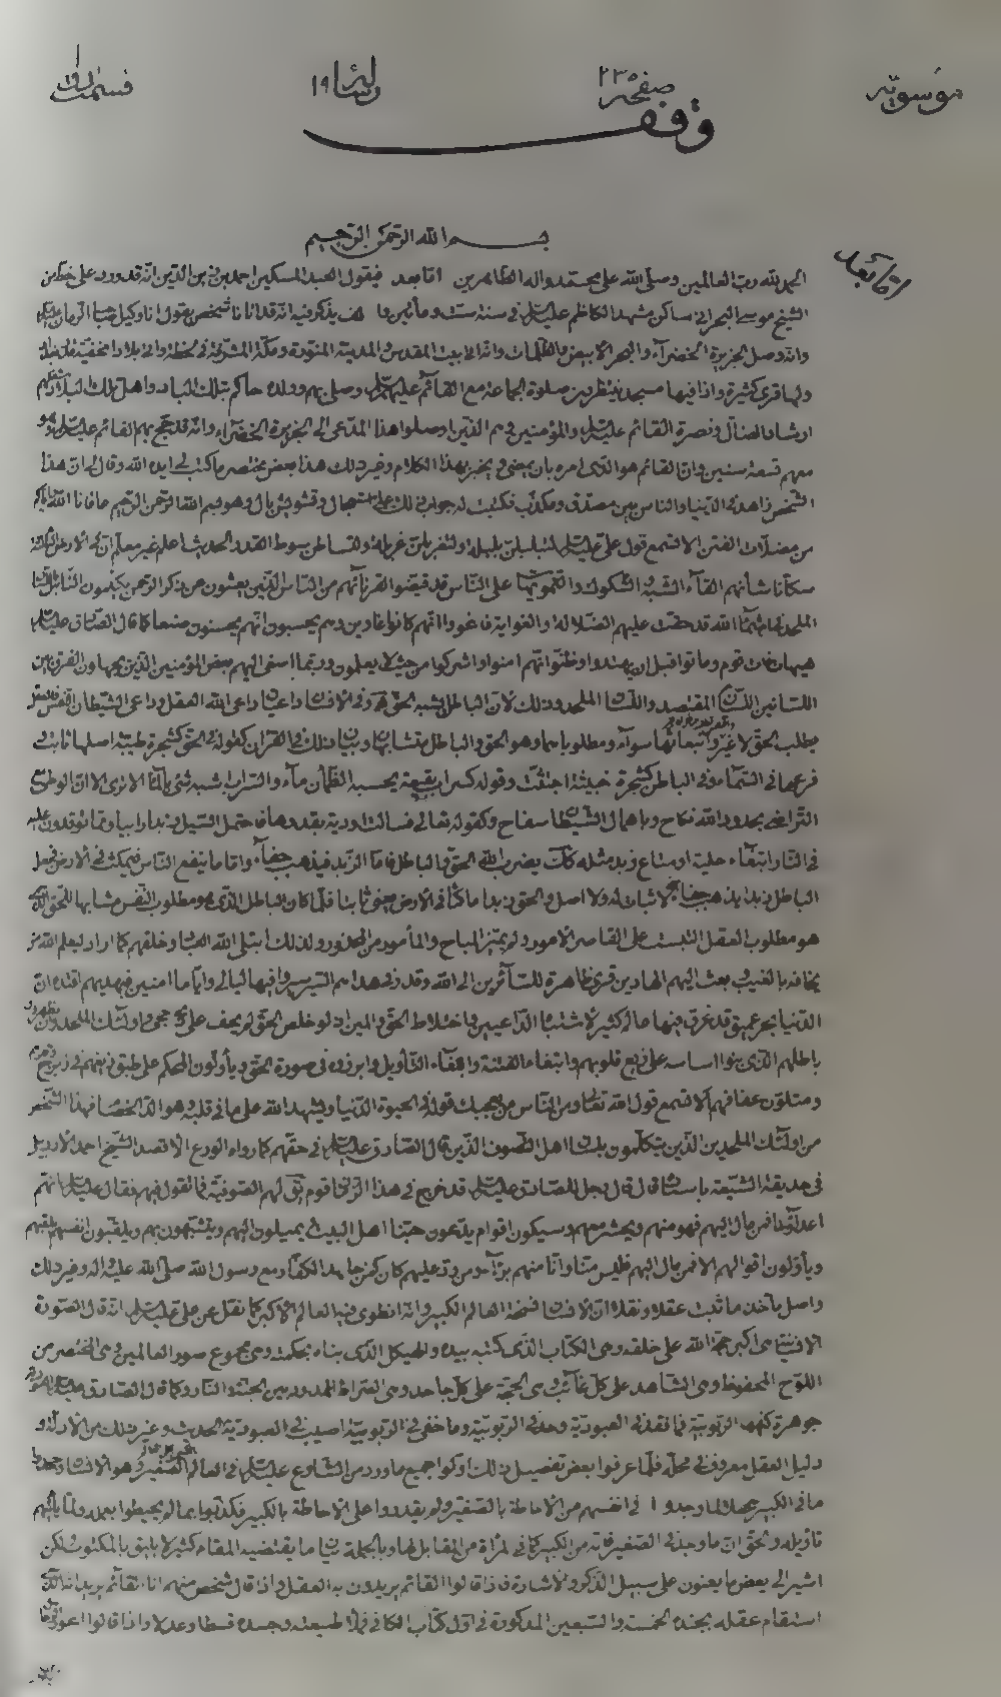 موسويه
صفحه ٢٣٥
رساله ١٩
قسمت اول
وقف
بسم الله الرحمن الرحيم
اما بعد
الحمد لله رب العالمين وصلى الله على محمد واله الطاهرين اما بعد فيقول العبد المسكين احمد بن زين الدين انه قد ورد على خط من
الشيخ موسى البحراني ساكن مشهد الكاظم عليه السلم في سنة ست ومأتين يذكر فيه انه قد اتانا شخص يقول انا وكيل صاحب الزمان عليه السلم
وانه وصل الجزيرة الخضراء والبحر الابيض والظلمات واتى الى بيت المقدس والمدينة المنورة ومكة المشرفة في لحظة والى بلاد مخفية
ولها قرى كثيرة واذا فيها مسجد ينتظرون صلوة الجماعة مع القائم عليه السلم وصلى بهم وولده حاكم بتلك البلاد واهل تلك البلاد
ارشاد الضال ونصرة القائم عليه السلم والمؤمنين وهم الذين اوصلوا هذا المدعى الى الجزيرة الخضراء وانه قد حج بهم القائم عليه السلم وهو
معهم تسعة سنين وان القائم هو الذى امره بان يمضى ويخبر بهذا الكلام وغير ذلك هذا بعض مختصر ما كتب لى ايده الله وقال لى ان هذا
الشخص زاهد في الدنيا والناس بين مصدق ومكذب فكتبت له جواب ذلك على استعجال وتشويش بال وهو بسم الله الرحمن الرحيم عافانا الله واياكم
من مضلات الفتن الا تسمع قول على عليه السلم لتبلبلن بلبلة ولتغربلن غربلة ولتساطن سوط القدر الحديث اعلم غير معلم ان في الارض
سكانا شأنهم القاء الشبه والشكوك والتمويهات على الناس قد قيضوا لقرنائهم من الناس الذين يعشون عن ذكر الرحمن
الملحد في اسماء الله قد حقت عليهم الضلالة والغواية فاغووا انهم كانوا غاوين وهم يحسبون انهم يحسنون صنعا كما قال الصادق عليه السلم
هيهات فات قوم وماتوا قبل ان يهتدوا وظنوا انهم امنوا واشركوا من حيث لا يعلمون وربما اصغى اليهم بعض المؤمنين الذين
اللسانين اللسان المقتصد واللسان الملحد وذلك لان الباطل يشبه الحق وفي الانسان داعيان داعي الله العقل وداعي الشيطان النفس
يطلب الحق لا غير وتبعاتها سواه ومطلوباهما وهو الحق والباطل متشابهان وبيان ذلك في القران كقوله في الحق كشجرة طيبة اصلها ثابت و
فرعها في السماء وفي الباطل كشجرة خبيثة اجتثت وقوله كسراب بقيعة يحسبه الظمآن ماء والسراب اشبه شئ بالماء الا ترى الا ان الوطى
التراضى بحدود الله نكاح وباهمال الشيطان سفاح وكقوله تعالى فسالت اودية بقدرها فاحتمل السيل زبدا رابيا ومما توقدون عليه
في النار ابتغاء حلية او متاع زبد مثله كذلك يضرب الله الحق والباطل فاما الزبد فيذهب جفاء واما ما ينفع الناس فيمكث في الارض فجعل
الباطل زبدا يذهب جفاء لا ثبات له ولا اصل والحق زبدا ماكثا في الارض يعنى ثابتا فلما كان الباطل الذى هو مطلوب النفس مشابها للحق الذى
هو مطلوب العقل التبست على القاصر الامور ولم يميز المباح والمأمور من المحذور ولذلك ابتلى الله العباد وخلقهم كما اراد ليعلم الله من
يخافه بالغيب وبعث اليهم الهادين قرى ظاهرة للسائرين الى الله وقدر فيها السير سيروا فيها ليالى واياما امنين
الدنيا بحر عميق قد غرق فيها عالم كثير لاشتباه الداعيين واختلاط الحق والمين اذ لو خلص الحق لم يخف على ذى حجى واولئك الملحدون يظهرون
باطلهم الذى بنوا اساسه على زيغ قلوبهم وابتغاء الفتنة وابتغاء التأويل وابرزوه في صورة الحق ويأولون المحكم على طبق زيغهم
ومتلون عفافهم الا تسمع قول الله تعالى ومن الناس من يعجبك قوله في الحيوة الدنيا ويشهد الله على ما في قلبه وهو الد الخصام فهذا الشخص
من اولئك الملحدين الذين يتكلمون بلسان اهل التصوف الذين قال الصادق عليه السلم في حقهم كما رواه الورع الا قصد الشيخ احمد الاردبيلى
في حديقة الشيعة باسناده قال قال رجل للصادق عليه السلم قد خرج في هذا الزمان قوم يق لهم الصوفية فما تقول فيهم فقال عليه السلم انهم
اعداؤنا فمن مال اليهم فهو منهم ويحشر معهم وسيكون اقوام يدعون حبنا اهل البيت يميلون اليهم ويتشبهون بهم ويلقبون انفسهم بلقبهم
ويأولون اقوالهم الا فمن مال اليهم فليس منا وانا منهم برآء ومن رد عليهم كان كمن جاهد الكفار مع رسول الله صلى الله عليه واله وغير ذلك
واصل مأخذ ما ثبت عقلا ونقلا ان الانسان نسخة العالم الكبير وانه انطوى فيه العالم الاكبر كما نقل عن على عليه السلم انه قال الصورة
الانسانية هى اكبر حجة الله على خلقه وهى الكتاب الذى كتبه بيده والهيكل الذى بناه بحكمته وهى مجموع صور العالمين وهى المختصر من
اللوح المحفوظ وهى الشاهد على كل غائب وهى الحجة على كل جاحد وهى الصراط الممدود بين الجنة والنار وكما قال الصادق عليه السلم العبودية
جوهرة كنهها الربوبية فما فقد في العبودية وجد في الربوبية وما خفى في الربوبية اصيب في العبودية الحديث وغير ذلك من الادلة و
دليل العقل معروف في محله فلما عرفوا بعض تفصيل ذلك اولوا جميع ما ورد من الشارع عليه السلم في العالم الصغير وهو الانسان وجحدوا
ما في الكبير جهلا لما وجدوا في انفسهم من الاحاطة بالصغير ولم يقدروا على الاحاطة بالكبير فكذبوا بما لم يحيطوا بعلمه ولما يأتهم
تأويله والحق ان ما وجد في الصغير فانه من الكبير كما في المرآة من المقابل لها وبالجملة بيان ما يقتضيه المقام كثير لا يليق بالمكتوب لكن
اشير الى بعض ما يعنون على سبيل الذكر والاشارة فاذا قالوا القائم يريدون به العقل واذا قال شخص منهم انا القائم يريد انه
استقام عقله بجنده الخمسة والسبعين المذكورة في اول كتاب الكافي فملأ طبيعته وجسده قسطا وعدلا واذا قالوا